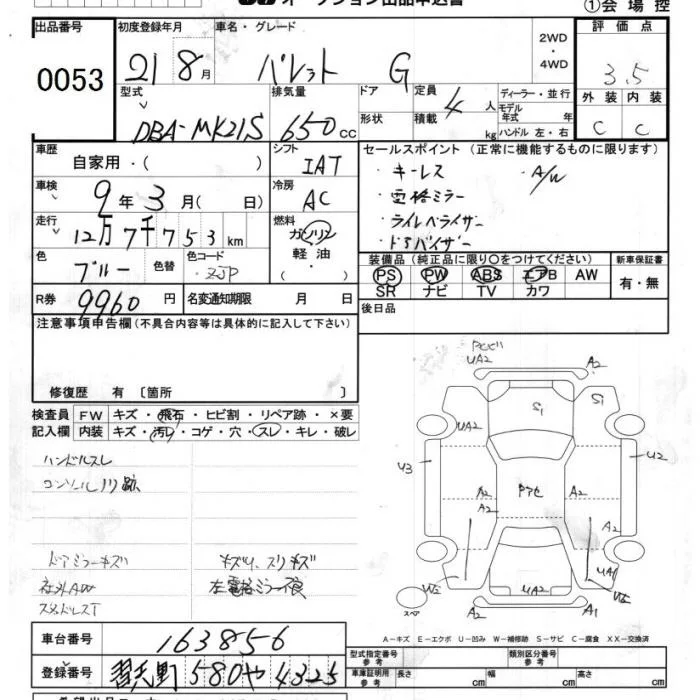 オークション出品申込書
①会場控
出品番号 0053
初度登録年月 21 8月
車名・グレード パレット G
2WD ・ 4WD
評価点 3.5
外装 C 内装 C
型式 DBA-MK21S
排気量 650cc
ドア 形状
定員 4人
積載 kg
ディーラー・並行
モデル年式 年式
ハンドル 左・右
車歴 自家用・( )
シフト IAT
車検 9年3月( 日)
冷房 AC
走行 12万7千753km
燃料 ガソリン 軽油 ・( )
色 ブルー 色替
色コード ZJP
R券 9960円
名変通知期限 月 日
セールスポイント(正常に機能するものに限ります)
・キーレス ・A/W
・電格ミラー
・ライトレベライザー
・ドアバイザー
装備品(純正品に限り○をつけてください)
PS PW ABS エアB AW
SR ナビ TV カワ
新車保証書 有・無
後日品
注意事項申告欄(不具合内容等は具体的に記入して下さい)
修復歴 有〔箇所 〕
検査員記入欄
FW キズ・飛石・ヒビ割・リペア跡・×要
内装 キズ・汚レ・コゲ・穴・スレ・キレ・破レ
ハンドルスレ
コンソールノリ跡
ドアミラーキズ
社外AW
スタッドレスT
キズソリ、スリキズ
左電格ミラー不良
UA2 A2
S1 S1
UA2
U3 U2
A2 A2
A2 A2
UA1
W2 UA2 W2
A2 A1
スペア
A-キズ E-エクボ U-凹み W-補修跡 S-サビ C-腐食 XX-交換済
車台番号 163856
登録番号 習志野 580 や 4325
型式指定番号 参考
類別区分番号 参考
車庫証明用 参考 長さ cm 幅 cm 高さ cm